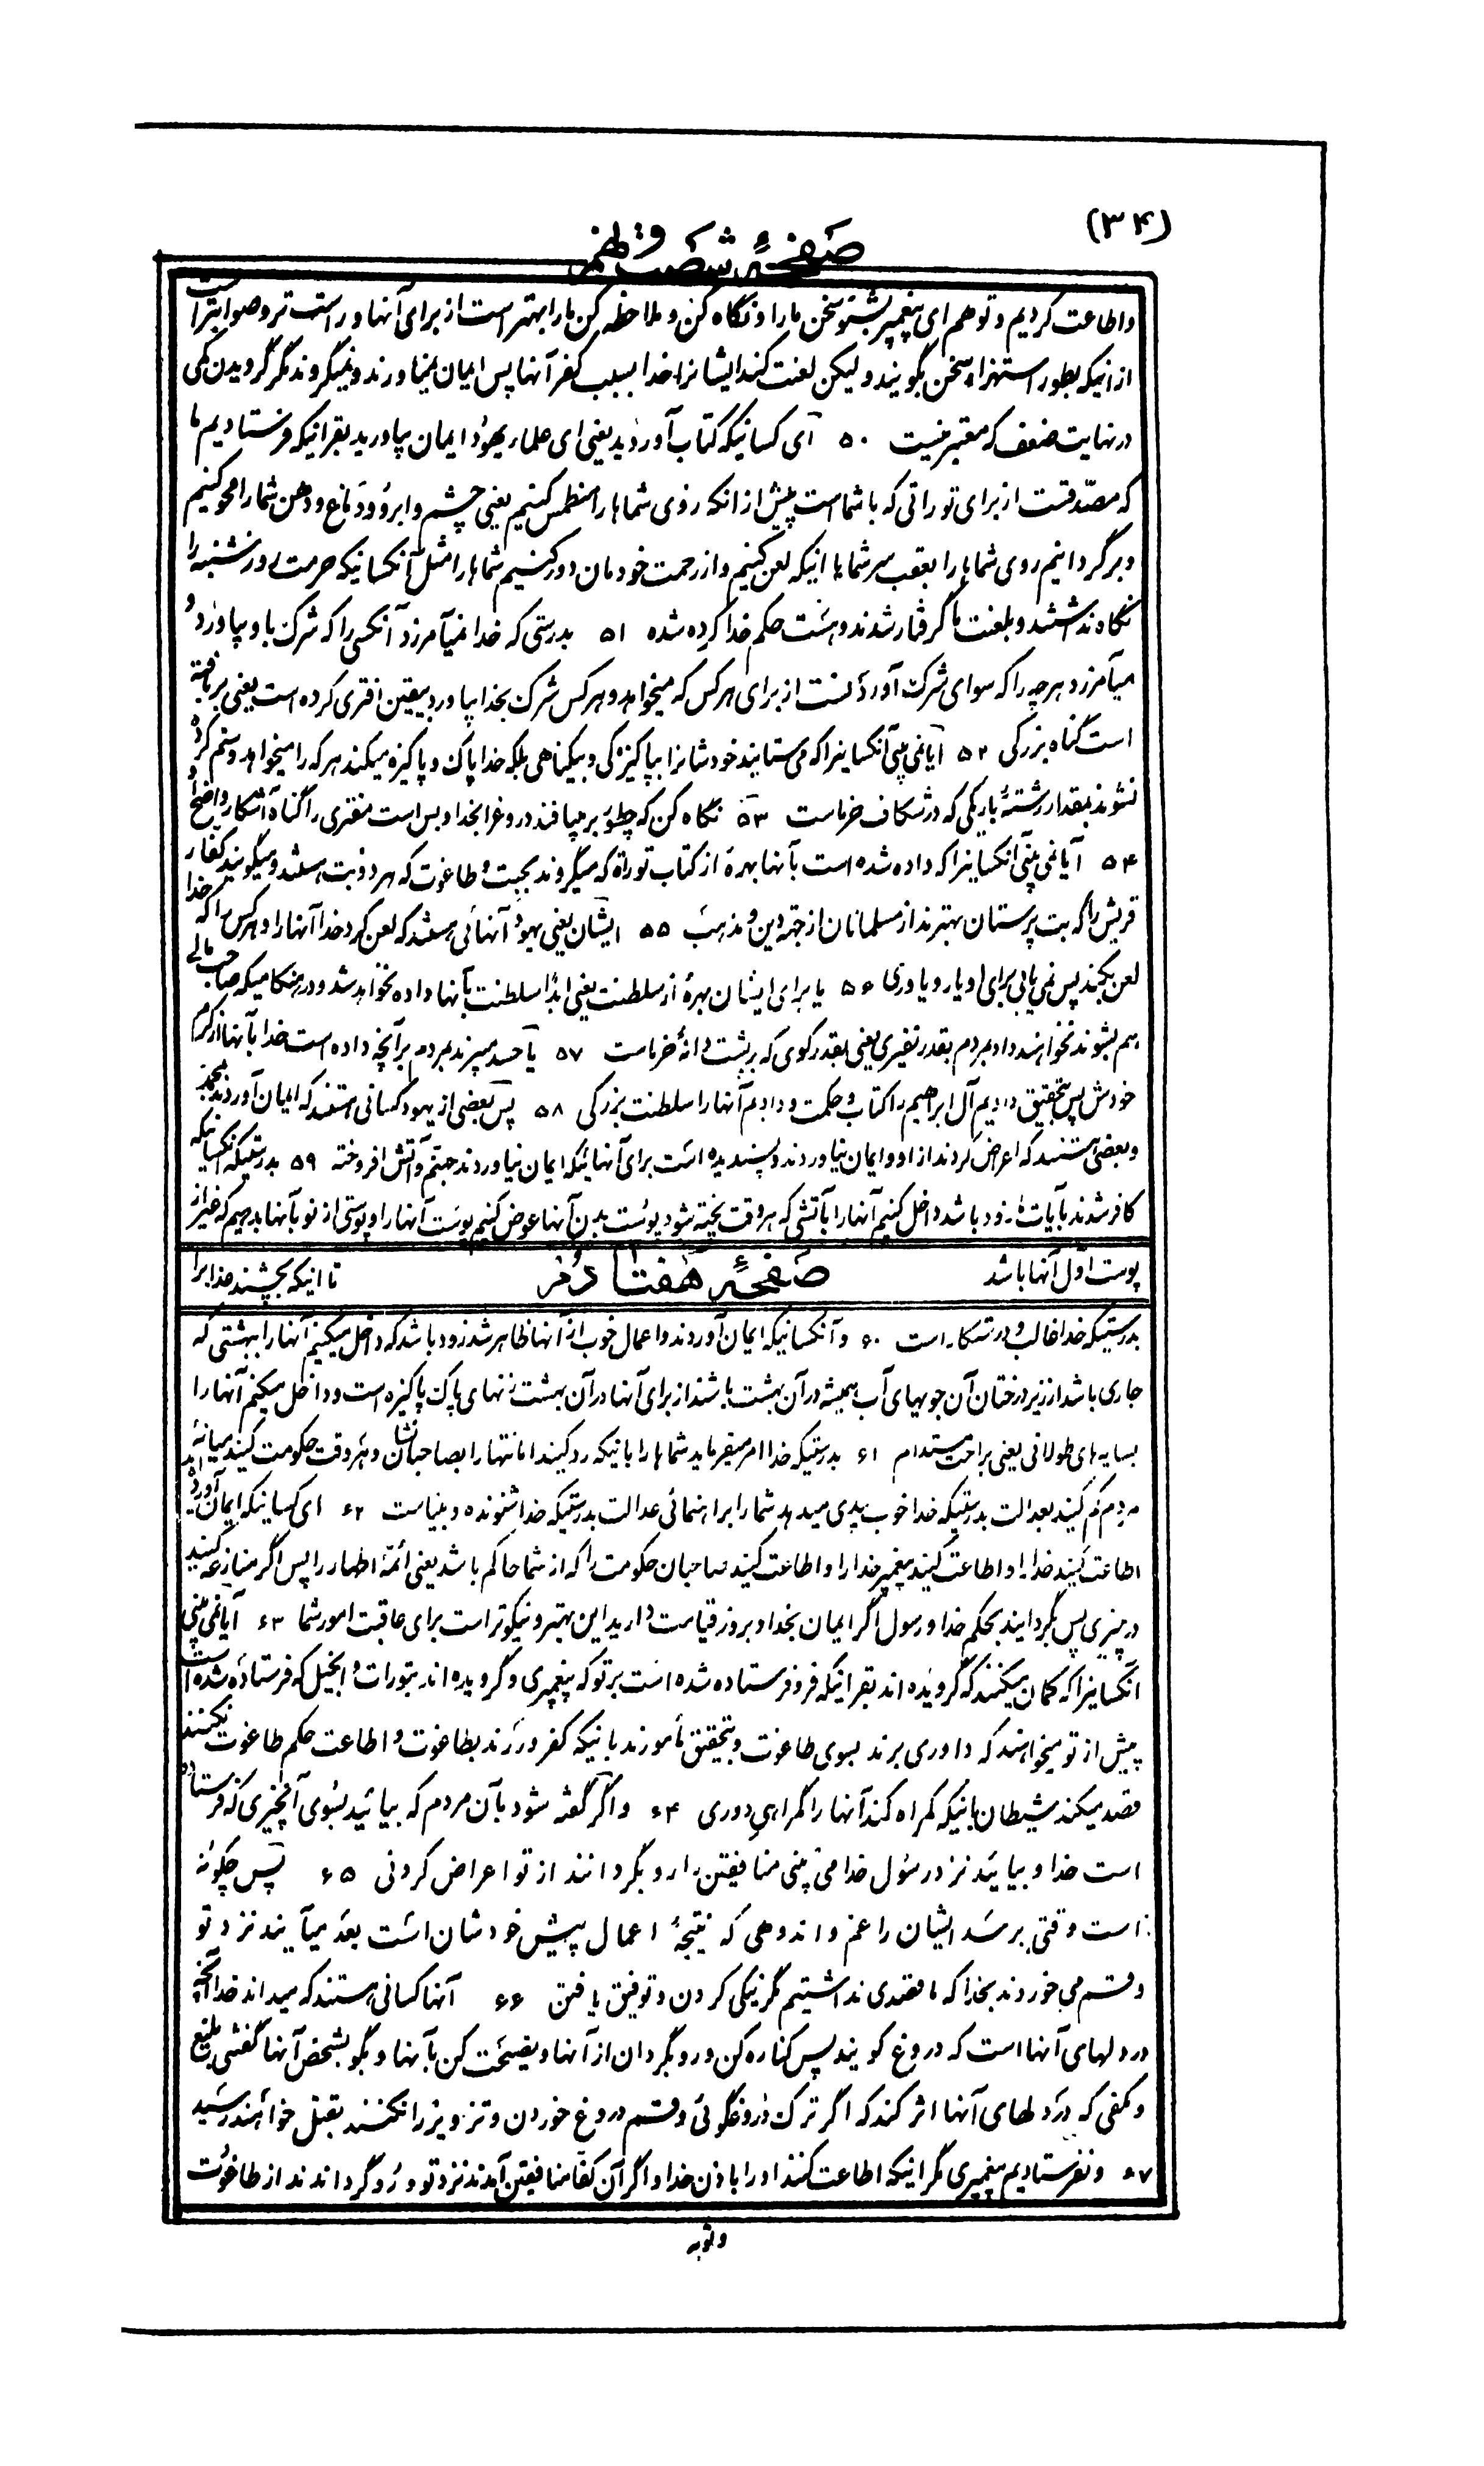 (۳۴)
صفحهٔ شصت و نهم
و اطاعت کردیم و تو هم ای پیغمبر بشنو سخن ما را و نگاه کن و ملاحظه کن ما را بهتر است از برای آنها و راست تر و صوابتر است
از اینکه بطور استهزاء سخن بگویند و لیکن لعنت کند ایشانرا خدا بسبب کفر آنها پس ایمان نمیاورند و نمیگروند مگر گرویدن کمی
در نهایت ضعف که معتبر نیست ۵۰ آی کسانیکه کتاب آوردید یعنی ای علماء یهود ایمان بیاورید بقرانیکه فرستادیم ما
که مصدّقست از برای توراتی که با شما است پیش از انکه روی شما ها را منطمس کنیم یعنی چشم و ابرو و دماغ و دهن شما را محو کنیم
و برگردانیم روی شما ها را بعقب سر شما یا اینکه لعن کنیم و از رحمت خودمان دور کنیم شما ها را مثل آنکسانیکه حرمت روز شنبه را
نگاه نداشتند و بلعنت ما گرفتار شدند و هست حکم خدا کرده شده ۵۱ بدرستی که خدا نمیآمرزد آنکسی را که شرک باو بیاورد و
میآمرزد هرچه را که سوای شرک آوردنست از برای هر کس که میخواهد و هر کس شرک بخدا بیاورد بیقین افتری کرده است یعنی بربافته
است گناه بزرگی ۵۲ آیا نمی بینی آنکسانیرا که می ستایند خودشانرا بپاکیزگی و بیگناهی بلکه خدا پاک و پاکیزه میکند هر که را میخواهد و ستم کرده
نشوند بمقدار رشتهٔ باریکی که در شکاف خرماست ۵۳ نگاه کن که چطور برمیبافند دروغرا بخدا و بس است مفتری را گناه آشکار و واضح
۵۴ آیا نمی بینی آنکسانیرا که داده شده است بآنها بهرهٔ از کتاب توراة که میگروند بجبت و طاغوت که هر دو بت هستند و میگویند کفار
قریش را که بت پرستان بهترند از مسلمانان از جهة دین و مذهب ۵۵ ایشان یعنی یهود آنهائی هستند که لعن کرد خدا آنها را و هر کس را که خدا
لعن بکند پس نمی یابی برای او یار و یاوری ۵۶ یا برای ایشان بهرهٔ از سلطنت یعنی ابدًا سلطنت بآنها داده نخواهد شد و در هنگامیکه صاحب مالی
هم بشوند نخواهند داد بمردم بقدر نقیری یعنی بقدر گوی که بر پشت دانهٔ خرماست ۵۷ یا حسد میبرند بمردم برآنچه داده است خدا بآنها از کرم
خودش پس بتحقیق دادیم آل ابراهیم را کتاب و حکمت و دادیم آنها را سلطنت بزرگی ۵۸ پس بعضی از یهود کسانی هستند که ایمان آوردند بمحمد
و بعضی هستند که اعراض کردند از او و ایمان نیاوردند و پسندیده است برای آنهائیکه ایمان نیاوردند جهنم و آتش افروخته ۵۹ بدرستیکه آنکسانیکه
کافر شدند بآیات ما زود باشد داخل کنیم آنها را بآتشی که هر وقت پخته شود پوست بدن آنها عوض کنیم پوست آنها را و پوستی از نو بآنها بدهیم که غیر از
پوست اوّل آنها باشد
صفحهٔ هفتادم
تا اینکه بچشند عذابرا
بدرستیکه خدا غالب و درستکار است ۶۰ و آنکسانیکه ایمان آوردند و اعمال خوب از آنها ظاهر شد زود باشد که داخل میکنیم آنها را ببهشتی که
جاری باشد از زیر درختان آن جویهای آب همیشه در آن بهشت باشند از برای آنها در آن بهشت زنهای پاک پاکیزه است و داخل میکنیم آنها را
بسایه های طولانی یعنی براحت مستدام ۶۱ بدرستیکه خدا امر میفرماید شما ها را بانیکه رد کنید امانتها را بصاحبانشان و هر وقت حکومت کنید میانهٔ
مردم حکم کنید بعدالت بدرستیکه خدا خوب پندی میدهد شما را براهنمائی عدالت بدرستیکه خدا شنونده و بیناست ۶۲ ای کسانیکه ایمان آورده اید
اطاعت کنید خدا را و اطاعت کنید پیغمبر خدا را و اطاعت کنید صاحبان حکومت را که از شما حاکم باشد یعنی ائمّهٔ اطهار را پس اگر منازعه کنید
در چیزی پس برگردانید بحکم خدا و رسول اگر ایمان بخدا و بروز قیامت دارید این بهتر و نیکوتر است برای عاقبت امور شما ۶۳ آیا نمی بینی
آنکسانیرا که گمان میکنند که گرویده اند بقرانیکه فرو فرستاده شده است بر تو که پیغمبری و گرویده اند بتورات و انجیل که فرستاده شده است
پیش از تو میخواهند که داوری برند بسوی طاغوت و بتحقیق مأمورند بانیکه کفر ورزند بطاغوت و اطاعت حکم طاغوت نکنند
قصد میکند شیطان بانیکه گمراه کند آنها را گمراهی دوری ۶۴ و اگر گفته شود بآن مردم که بیائید بسوی آنچیزی که فرستاده
است خدا و بیائید نزد رسول خدا می بینی منافقین را رو بگردانند از تو اعراض کردنی ۶۵ پس چگونه
است وقتی برسد ایشان را غم و اندوهی که نتیجهٔ اعمال پیش خودشان است بعد میآیند نزد تو
و قسم می خوردند بخدا که ما قصدی نداشتیم مگر نیکی کردن و توفیق یافتن ۶۶ آنها کسانی هستند که میداند خدا آنچه
در دلهای آنها است که دروغ گویند پس کناره کن و رو بگردان از آنها و نصیحت کن بآنها و بگو بشخص آنها گفتنی بلیغ
و کمفی که در دلهای آنها اثر کند که اگر ترک دروغگوئی و قسم دروغ خوردن و تزویر را نکنند بقتل خواهند رسید
۶۷ و نفرستادیم پیغمبری مگر اینکه اطاعت کنند او را باذن خدا و اگر آن کفار منافقین آمدند نزد تو و رو گرداندند از طاغوت
و توبه